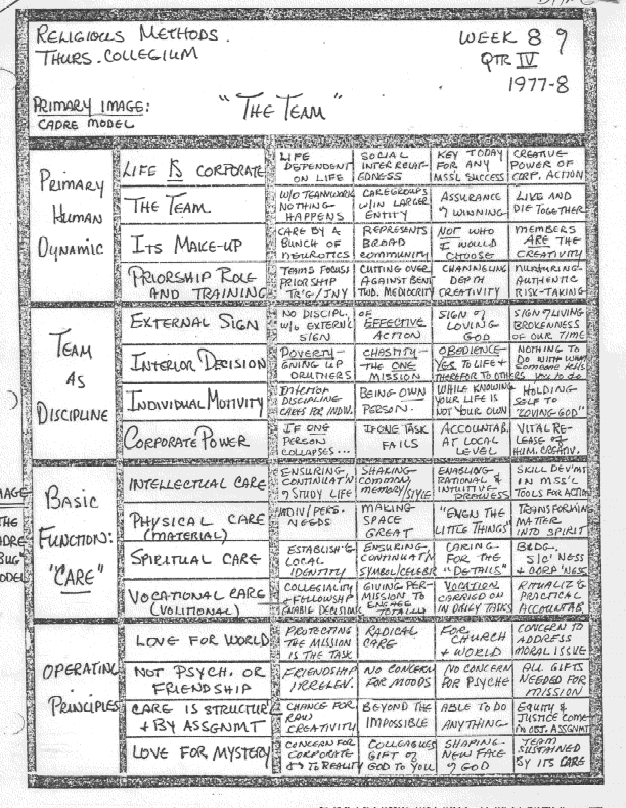 RELIGIOUS METHODS.
THURS. COLLEGIUM
WEEK 8 9
QTR IV
1977-8
PRIMARY IMAGE:
CADRE MODEL
"THE TEAM"
PRIMARY
HUMAN
DYNAMIC
LIFE IS CORPORATE
LIFE
DEPENDENT
ON LIFE
SOCIAL
INTERRELAT-
EDNESS
KEY TODAY
FOR ANY
MSSL SUCCESS
CREATIVE
POWER OF
CORP. ACTION
THE TEAM.
W/O TEAMWORK
NOTHING
HAPPENS
CAREGROUPS
W/IN LARGER
ENTITY
ASSURANCE
OF WINNING
LIVE AND
DIE TOGETHER
ITS MAKE-UP
CARE BY A
BUNCH OF
NEUROTICS
REPRESENTS
BROAD
COMMUNITY
NOT WHO
I WOULD
CHOOSE
MEMBERS
ARE THE
CREATIVITY
PRIORSHIP ROLE
AND TRAINING
TEAMS FOCUS/
PRIORSHIP
TR'G/JNY
CUTTING OVER
AGAINST BENI
TUD. MEDIOCRITY
CHANNELING
DEPTH
CREATIVITY
NURTURING-
AUTHENTIC
RISK-TAKING
TEAM
AS
DISCIPLINE
EXTERNAL SIGN
NO DISCIPL.
W/O EXTERNL
SIGN
OF
EFFECTIVE
ACTION
SIGN OF
LOVING
GOD
SIGN OF LIVING
BROKENNESS
OF OUR TIME
INTERIOR DECISION
POVERTY-
GIVING UP
OR/OTHERS
CHASTITY-
THE ONE
MISSION
OBEDIENCE-
YES TO LIFE +
THEREFOR TO OTHERS
NOTHING TO
DO WITH WHAT
SOMEONE TELLS
YOU TO DO
INDIVIDUAL MOTIVITY
INTERIOR
DISCIPLINE
CARES FOR INDIV.
BEING OWN
PERSON.
WHILE KNOWING
YOUR LIFE IS
NOT YOUR OWN
HOLDING
SELF TO
"LOVING GOD"
CORPORATE POWER
IF ONE
PERSON
COLLAPSES...
IF ONE TASK
FAILS
ACCOUNTAB.
AT LOCAL
LEVEL
VITAL RE-
LEASE OF
HUM. CREATIV.
BASIC
FUNCTION:
"CARE"
INTELLECTUAL CARE
ENSURING,
CONTINUAT'N
OF STUDY LIFE
SHARING
COMMON
MEMORY/STYLE
ENABLING
RATIONAL &
INTUITIVE
SKILL DEV'MT
IN MSS'L
TOOLS FOR ACTION
PHYSICAL CARE
(MATERIAL)
INDIV/PERS.
NEEDS
MAKING
SPACE
GREAT
"EVEN THE
LITTLE THINGS"
TRANSFORMING
MATTER
INTO SPIRIT
SPIRITUAL CARE
ESTABLISH'G
LOCAL
IDENTITY
ENSURING
CONTINUAT'N
SYMBOL/CELEBR
CARING
FOR THE
"DETAILS"
BLDG.
'NESS
+ CORP 'NESS
VOCATIONAL CARE
(VOLITIONAL)
COLLEGIALITY
+ FELLOWSHIP
ENABLE DECISION
GIVING PER-
MISSION TO
ENGAGE
TOTALLY
VOCATION
CARRIED ON
IN DAILY TASKS
RITUALIZ'G
PRACTICAL
ACCOUNTAB
OPERATING
PRINCIPLES
LOVE FOR WORLD
PROTECTING
THE MISSION
IS THE TASK
RADICAL
CARE
FOR
CHURCH
+ WORLD
CONCERN TO
ADDRESS
MORAL ISSUE
NOT PSYCH. OR
FRIENDSHIP
FRIENDSHIP
IRRELEV.
NO CONCERN
FOR MOODS
NO CONCERN
FOR PSYCHE
ALL GIFTS
NEEDED FOR
MISSION
CARE IS STRUCTUR
+ BY ASSGNMT
CHANCE FOR
RAW
CREATIVITY
BEYOND THE
IMPOSSIBLE
ABLE TO DO
ANYTHING
EQUITY &
JUSTICE COME
IN OBJ. ASSGNMT
LOVE FOR MYSTERY
CONCERN FOR
CORPORATE
TO REALITY
COLLEAGUES
GIFT OF
GOD TO YOU
SHAPING
NEW FACE
OF GOD
TEAM
SUSTAINED
BY ITS CARE